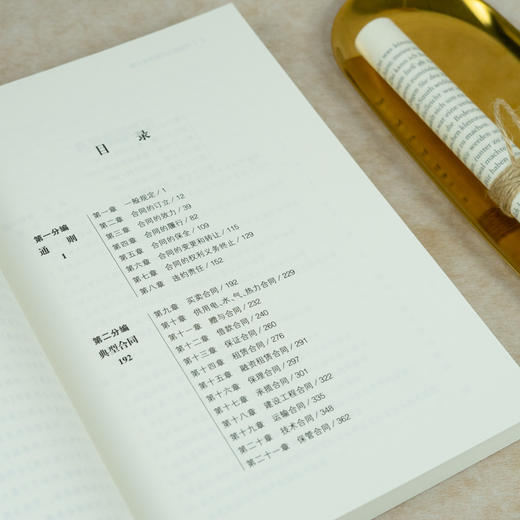 目 录
第一分编
通 则
1
第一章 一般规定/1
第二章 合同的订立/12
第三章 合同的效力/39
第四章 合同的履行/82
第五章 合同的保全/109
第六章 合同的变更和转让/115
第七章 合同的权利义务终止/129
第八章 违约责任/152
第二分编
典型合同
192
第九章 买卖合同/192
第十章 供用电、水、气、热力合同/229
第十一章 赠与合同/232
第十二章 借款合同/240
第十三章 保证合同/260
第十四章 租赁合同/276
第十五章 融资租赁合同/291
第十六章 保理合同/297
第十七章 承揽合同/301
第十八章 建设工程合同/322
第十九章 运输合同/335
第二十章 技术合同/348
第二十一章 保管合同/362